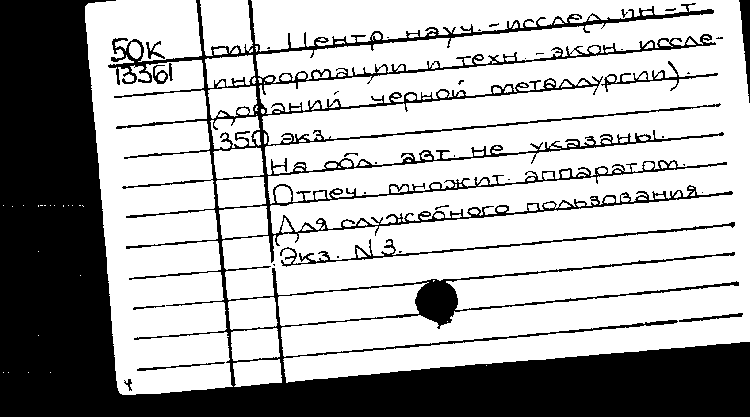 50К гии. Центр. науч.-исслед. ин-т
13361 информации и техн.-экон. иссле-
дований черной металлургии).
350 экз.
На обл. авт. не указаны.
Отпеч. множит. аппаратом.
Для служебного пользования.
Экз. N 3.